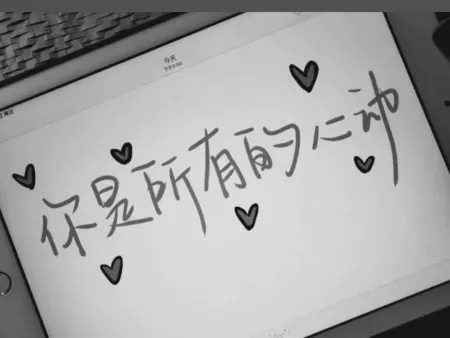 今天
你是所有的心动